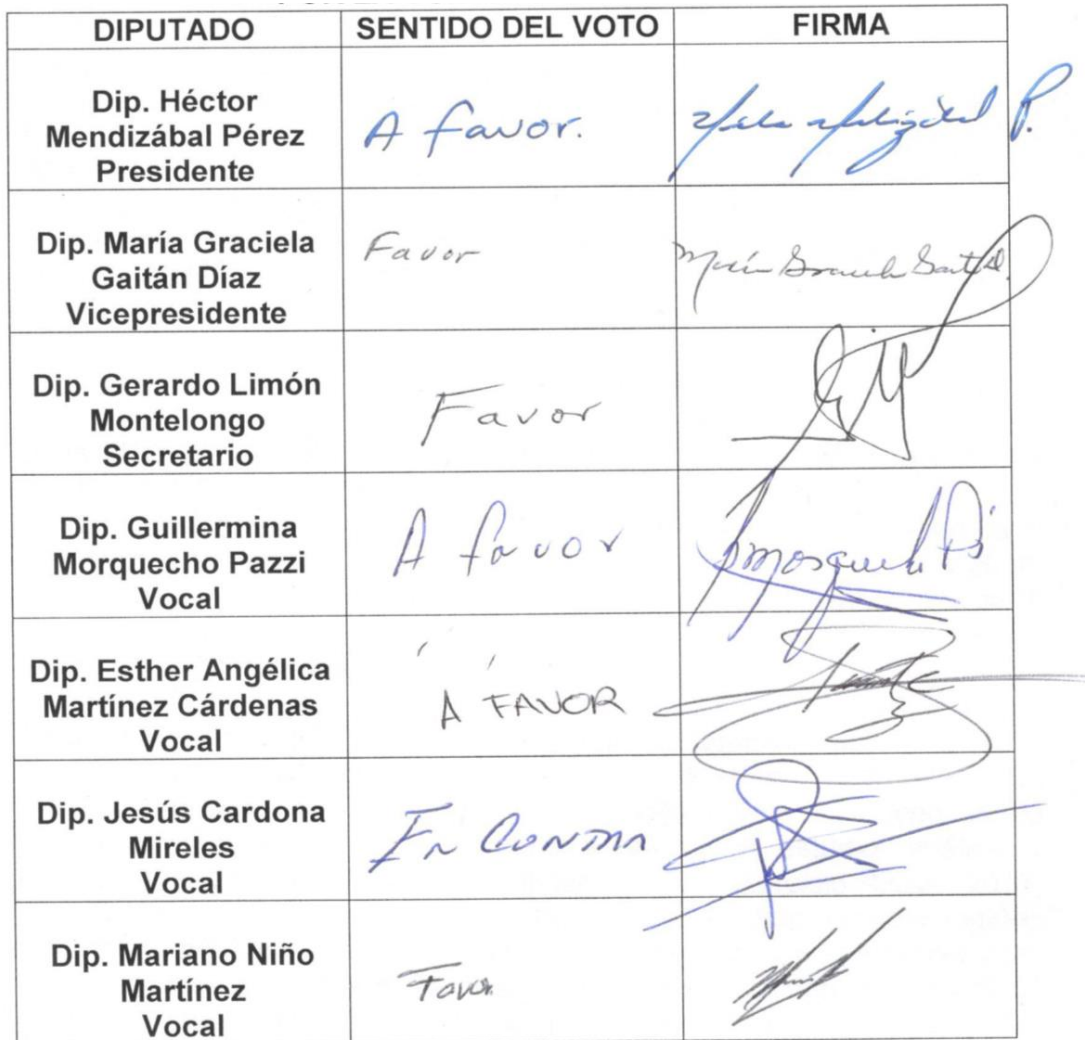 DIPUTADO SENTIDO DEL VOTO FIRMA
Dip. Héctor
Mendizábal Pérez
Presidente
A favor.
Dip. María Graciela
Gaitán Díaz
Vicepresidente
Favor
Dip. Gerardo Limón
Montelongo
Secretario
Favor
Dip. Guillermina
Morquecho Pazzi
Vocal
A favor
Dip. Esther Angélica
Martínez Cárdenas
Vocal
A FAVOR
Dip. Jesús Cardona
Mireles
Vocal
En Contra
Dip. Mariano Niño
Martínez
Vocal
Favor